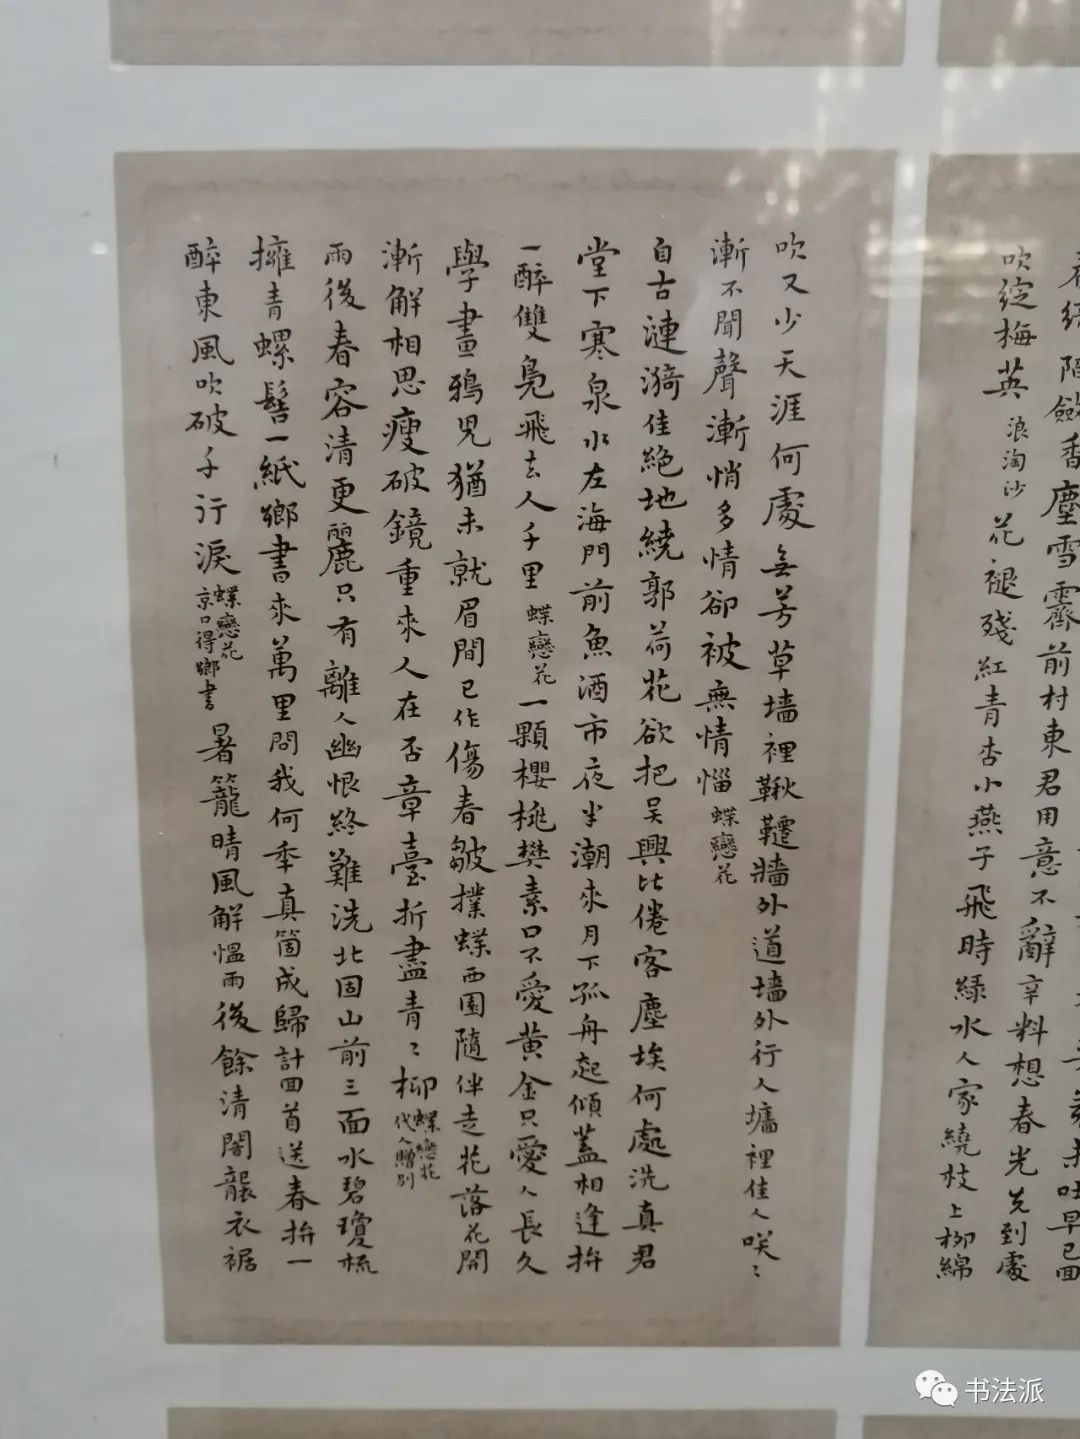 未吐早已囬
春綺陌歛香塵雪霽前村東君用意不辭辛料想春光先到處
吹綻梅英 浪淘沙 花褪殘紅青杏小燕子飛時綠水人家繞枝上柳綿
吹又少天涯何處無芳草墻裡鞦韆牆外道墻外行人墻裡佳人咲〻
漸不聞聲漸悄多情卻被無情惱 蝶戀花
自古漣漪佳絕地繞郭荷花欲把吳興比倦客塵埃何處洗真君
堂下寒泉水左海門前魚酒市夜半潮來月下孤舟起傾蓋相逢拚
一醉雙鳧飛去人千里 蝶戀花 一顆櫻桃樊素口不愛黃金只愛人長久
學畫鴉兒猶未就眉間已作傷春皺撲蝶西園隨伴走花落花開
漸解相思瘦破鏡重來人在否章臺折盡青〻柳 蝶戀花 代人贈別
雨後春容清更麗只有離人幽恨終難洗北固山前三面水碧瓊梳
擁青螺髻一紙鄉書來萬里問我何年真箇成歸計囬首送春拚一
醉東風吹破千行淚 蝶戀花 京口得鄉書 暑籠晴風解慍雨後餘清闇襲衣裾
书法派